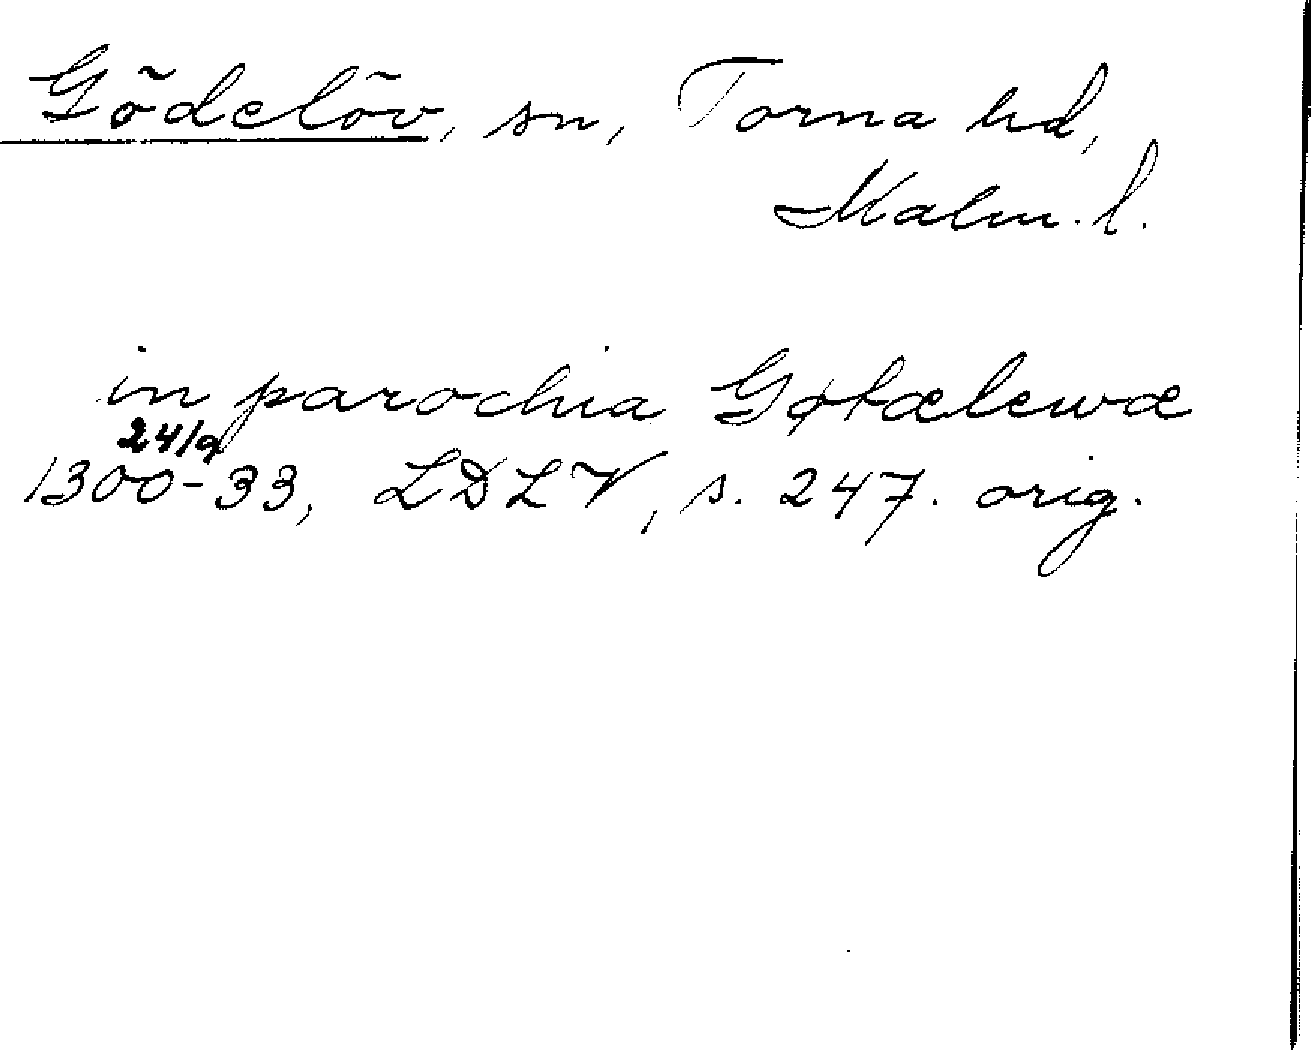 Gödelöv, sn, Torna hd,
Malm. l.
in parochia Gøtælewæ
24/9
1300-33, LDLV, s. 247. orig.